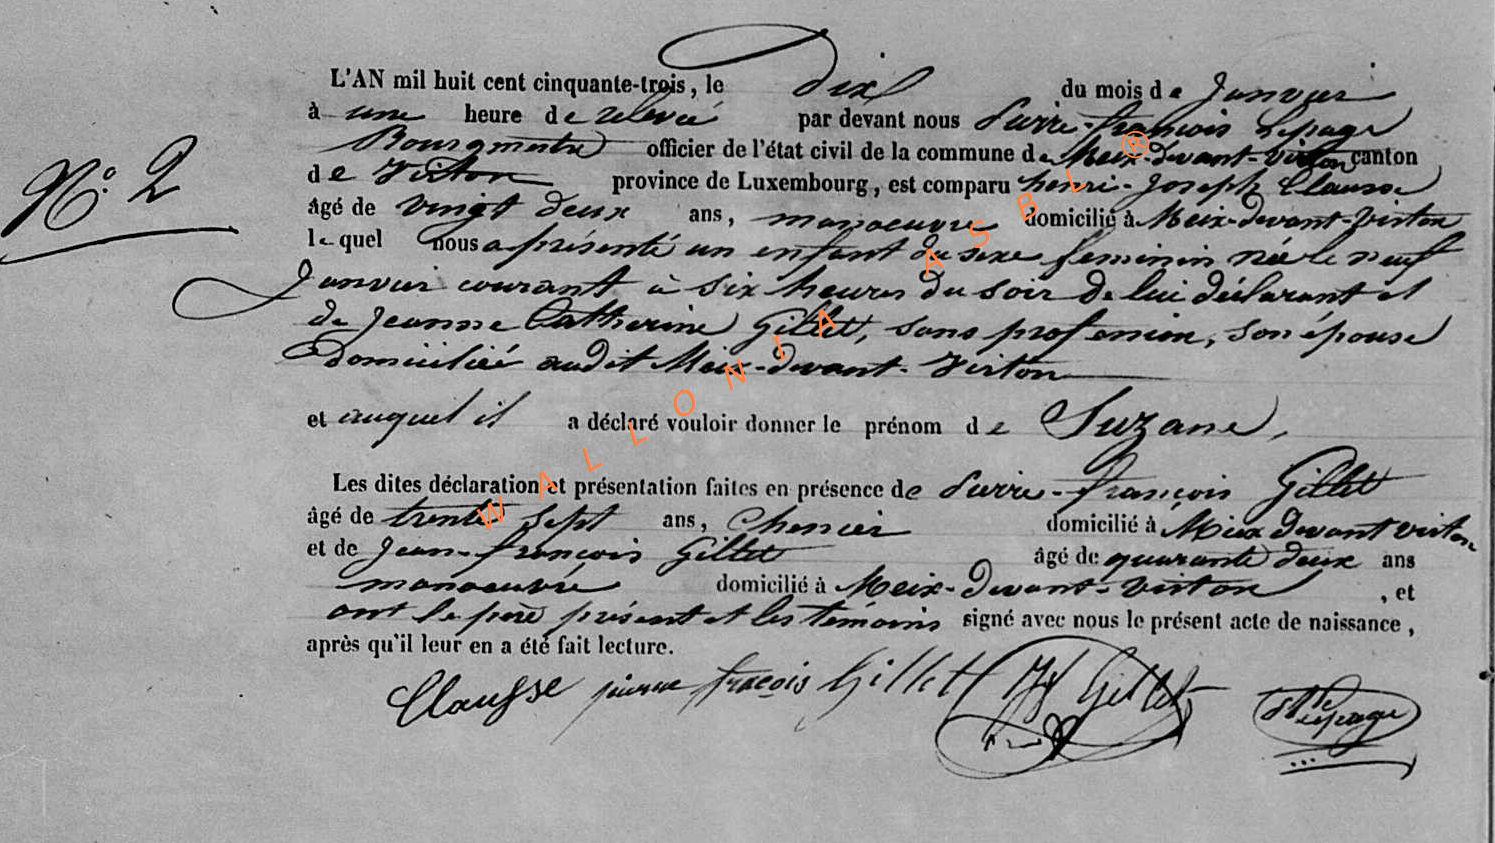 L'AN mil huit cent cinquante-trois, le dix du mois de Janvier
à une heure de relevée par devant nous Pierre-françois Lepage
Bourgmestre officier de l'état civil de la commune de Meix-devant-Virton canton
N° 2
de Virton province de Luxembourg, est comparu henri-Joseph Clausse
âgé de vingt deux ans, manoeuvre domicilié à Meix-devant-Virton
lequel nous a présenté un enfant du sexe feminin née le neuf
Janvier courant à six heures du soir de lui déclarant et
de Jeanne Catherine Gillet, sans profession, son épouse
domiciliée audit Meix-devant-Virton
et auquel il a déclaré vouloir donner le prénom de Suzane,
Les dites déclaration et présentation faites en présence de Pierre-françois Gillet
âgé de trente sept ans, domicilié à Meix devant virton
et de Jean-françois Gillet âgé de quarante deux ans
manoeuvre domicilié à Meix-devant-virton, et
ont le père présent et les témoins signé avec nous le présent acte de naissance,
après qu'il leur en a été fait lecture.
Clausse françois Gillet Gillet Lepage
WALLONIA ASBL ®